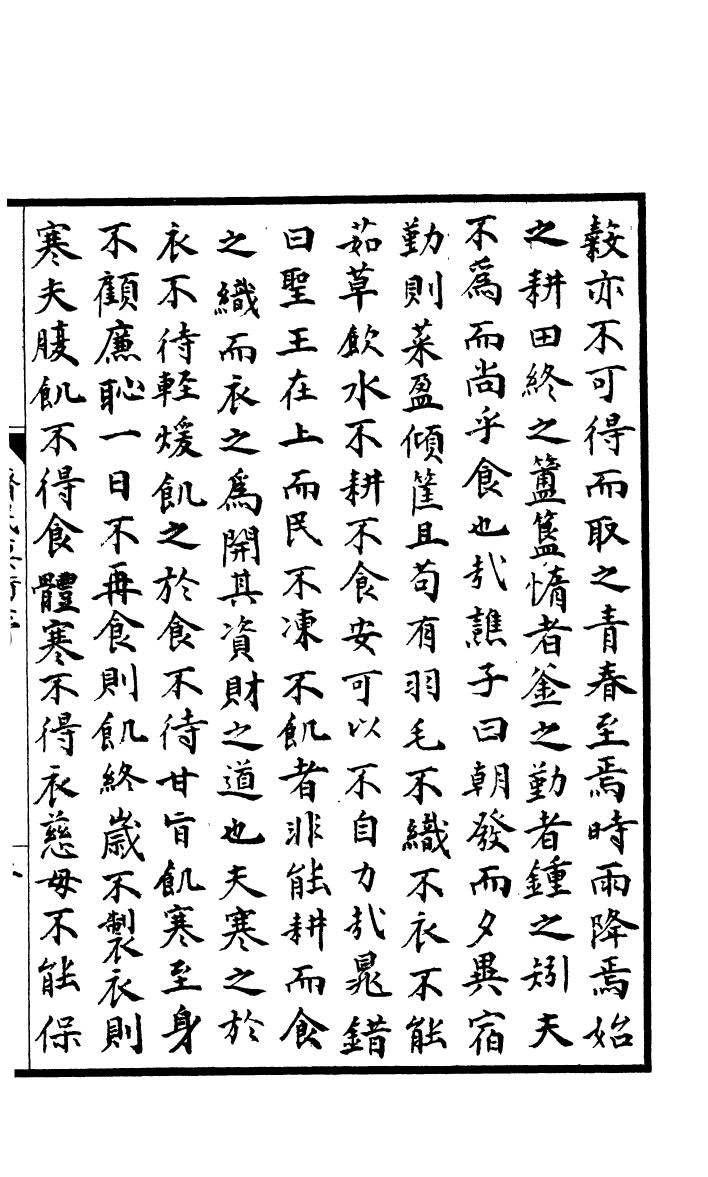 穀亦不可得而取之青春至焉時雨降焉始
之耕田終之簠簋惰者釜之勤者鍾之矧夫
不爲而尚乎食也㢤譙子曰朝發而夕異宿
勤則菜盈傾筐且苟有羽毛不織不衣不能
茹草飲水不耕不食安可以不自力㢤晁錯
曰聖王在上而民不凍不飢者非能耕而食
之織而衣之爲開其資財之道也夫寒之於
衣不待輕煖飢之於食不待甘旨飢寒至身
不顧廉恥一日不再食則飢終歲不製衣則
寒夫腹飢不得食體寒不得衣慈母不能保